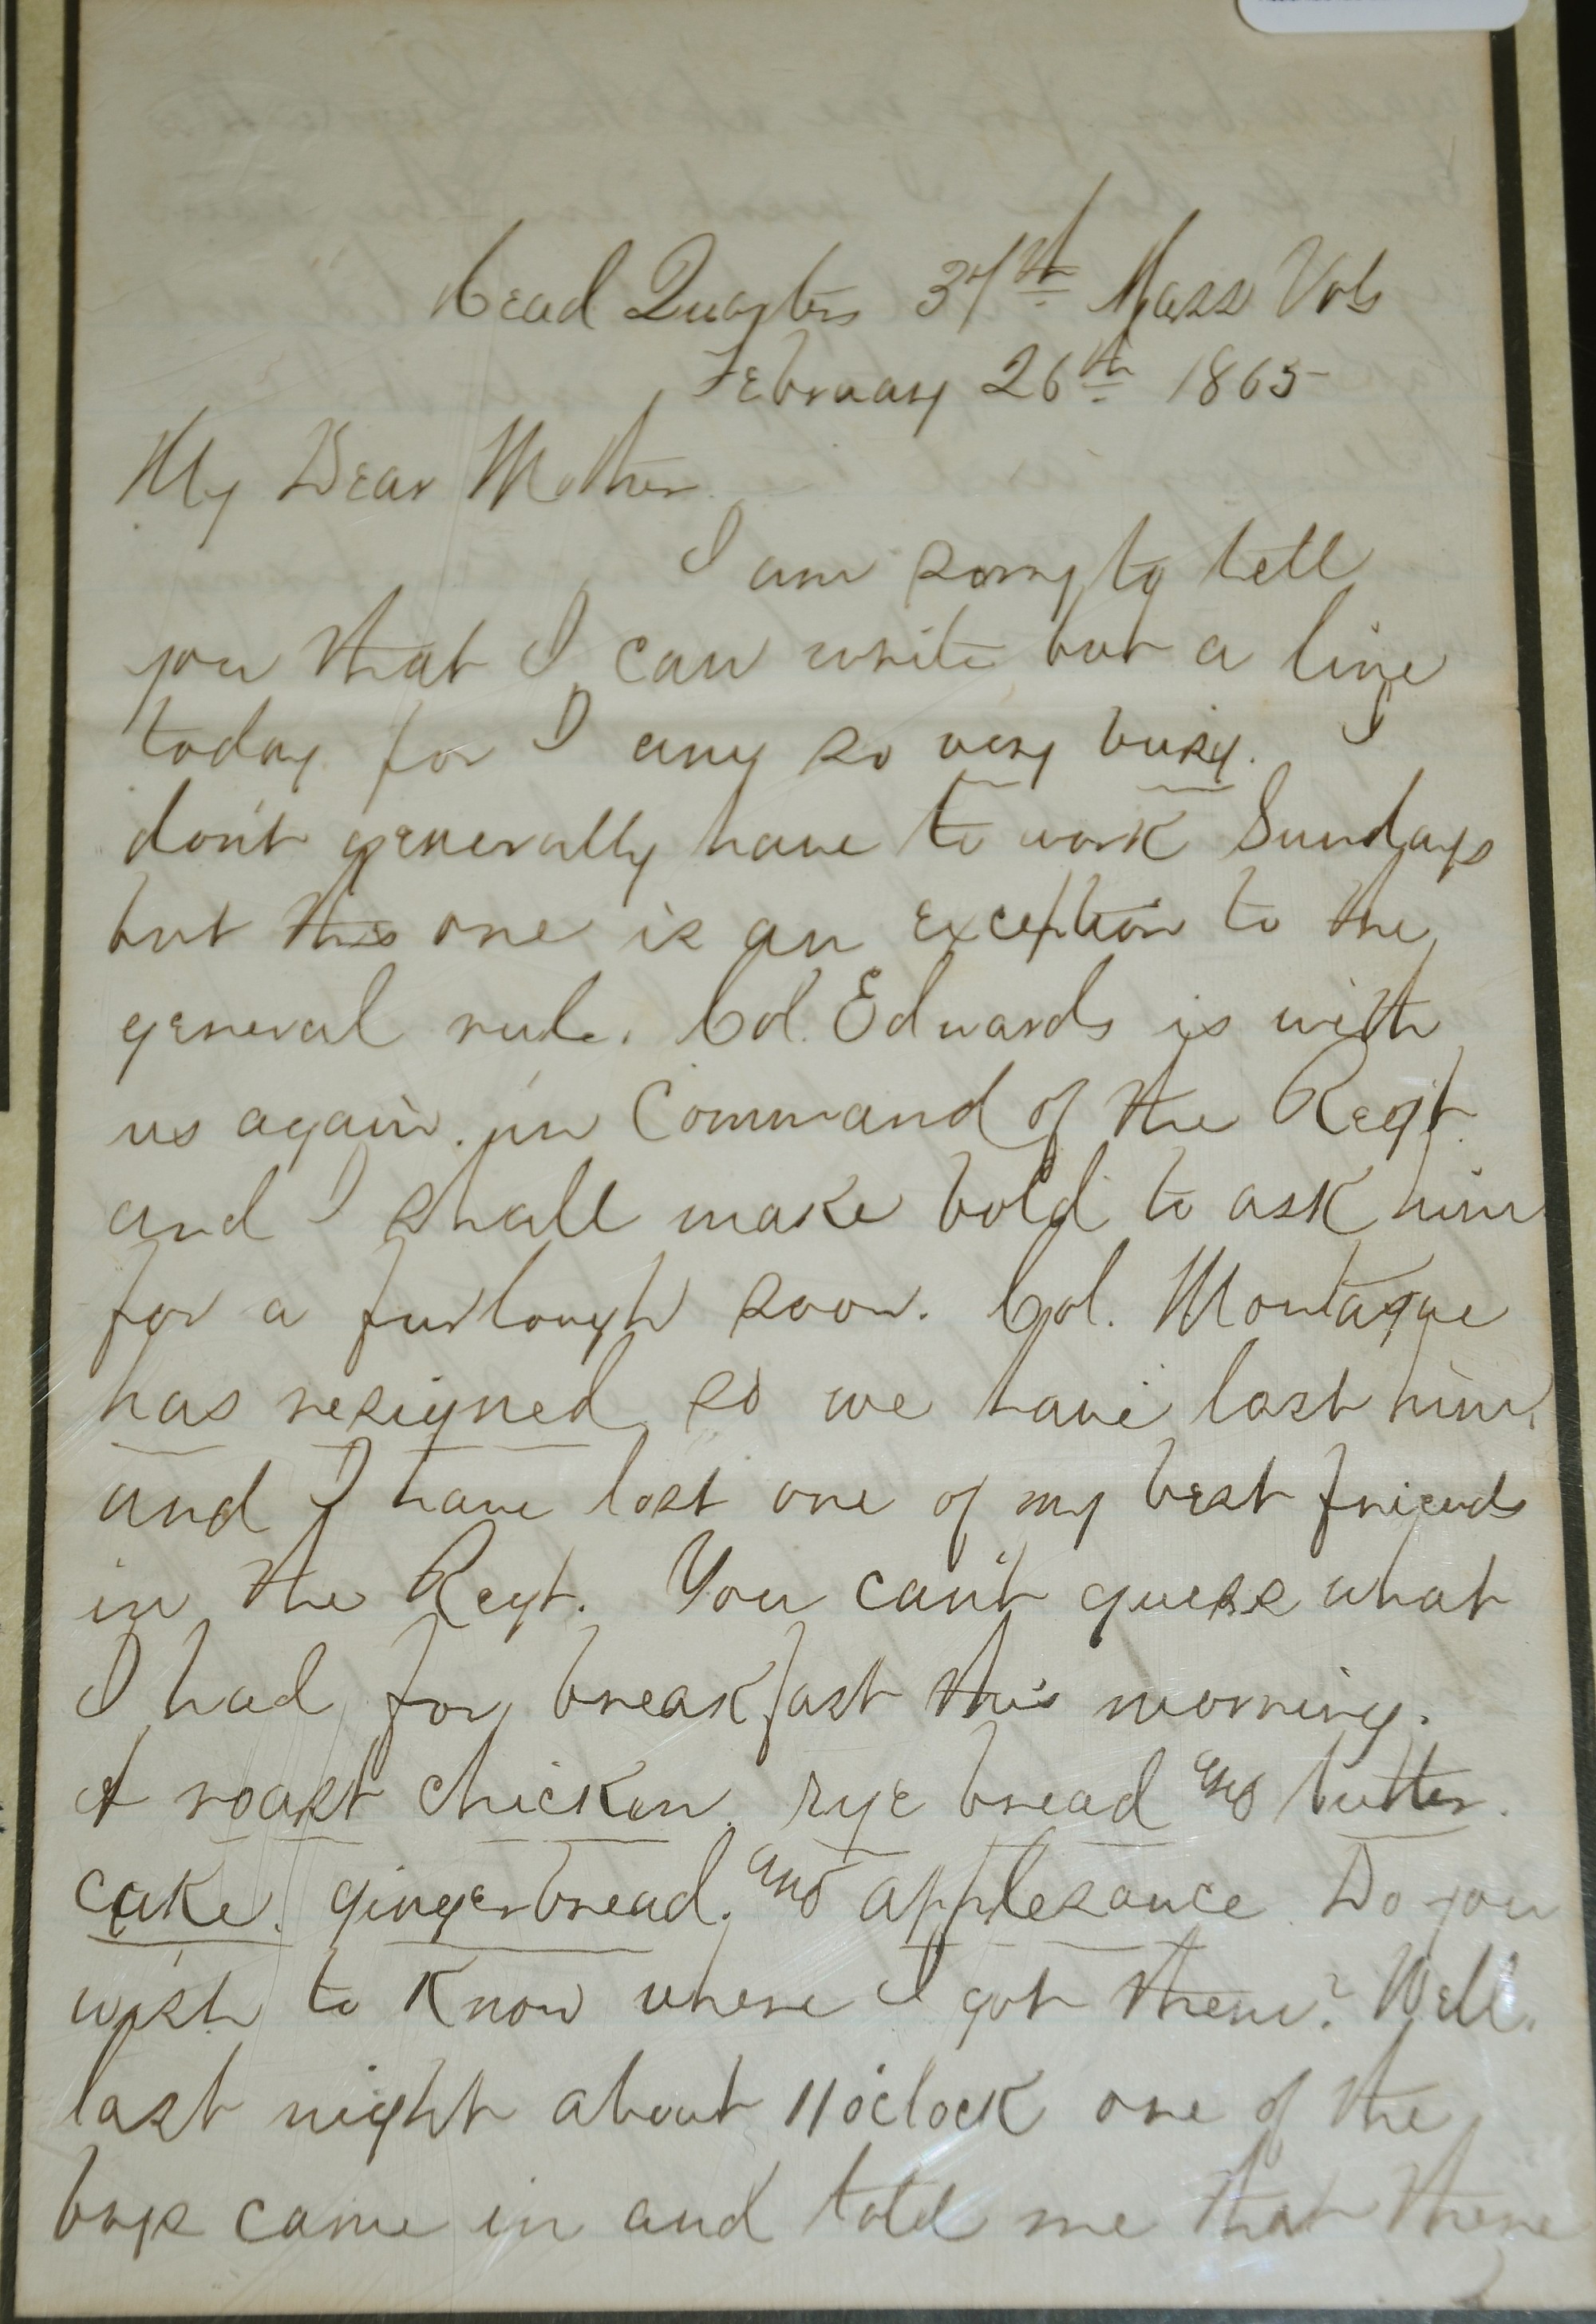 Head Quarters 37th Mass Vols
February 26th 1865
My Dear Mother.
I am sorry to tell
you that I can write but a line
today for I am so very busy. I
don't generally have to work Sundays
but this one is an exception to the
general rule. Col. Edwards is with
us again. in Command of the Regt.
and I shall make bold to ask him
for a furlough soon. Col. Montague
has resigned so we have lost him,
and I have lost one of my best friends
in the Regt. You can't guess what
I had for breakfast this morning.
A roast chicken. rye bread and butter.
cake. gingerbread. and applesauce. Do you
wish to know where I got them? Well.
last night about 11 o'clock one of the
boys came in and told me that there